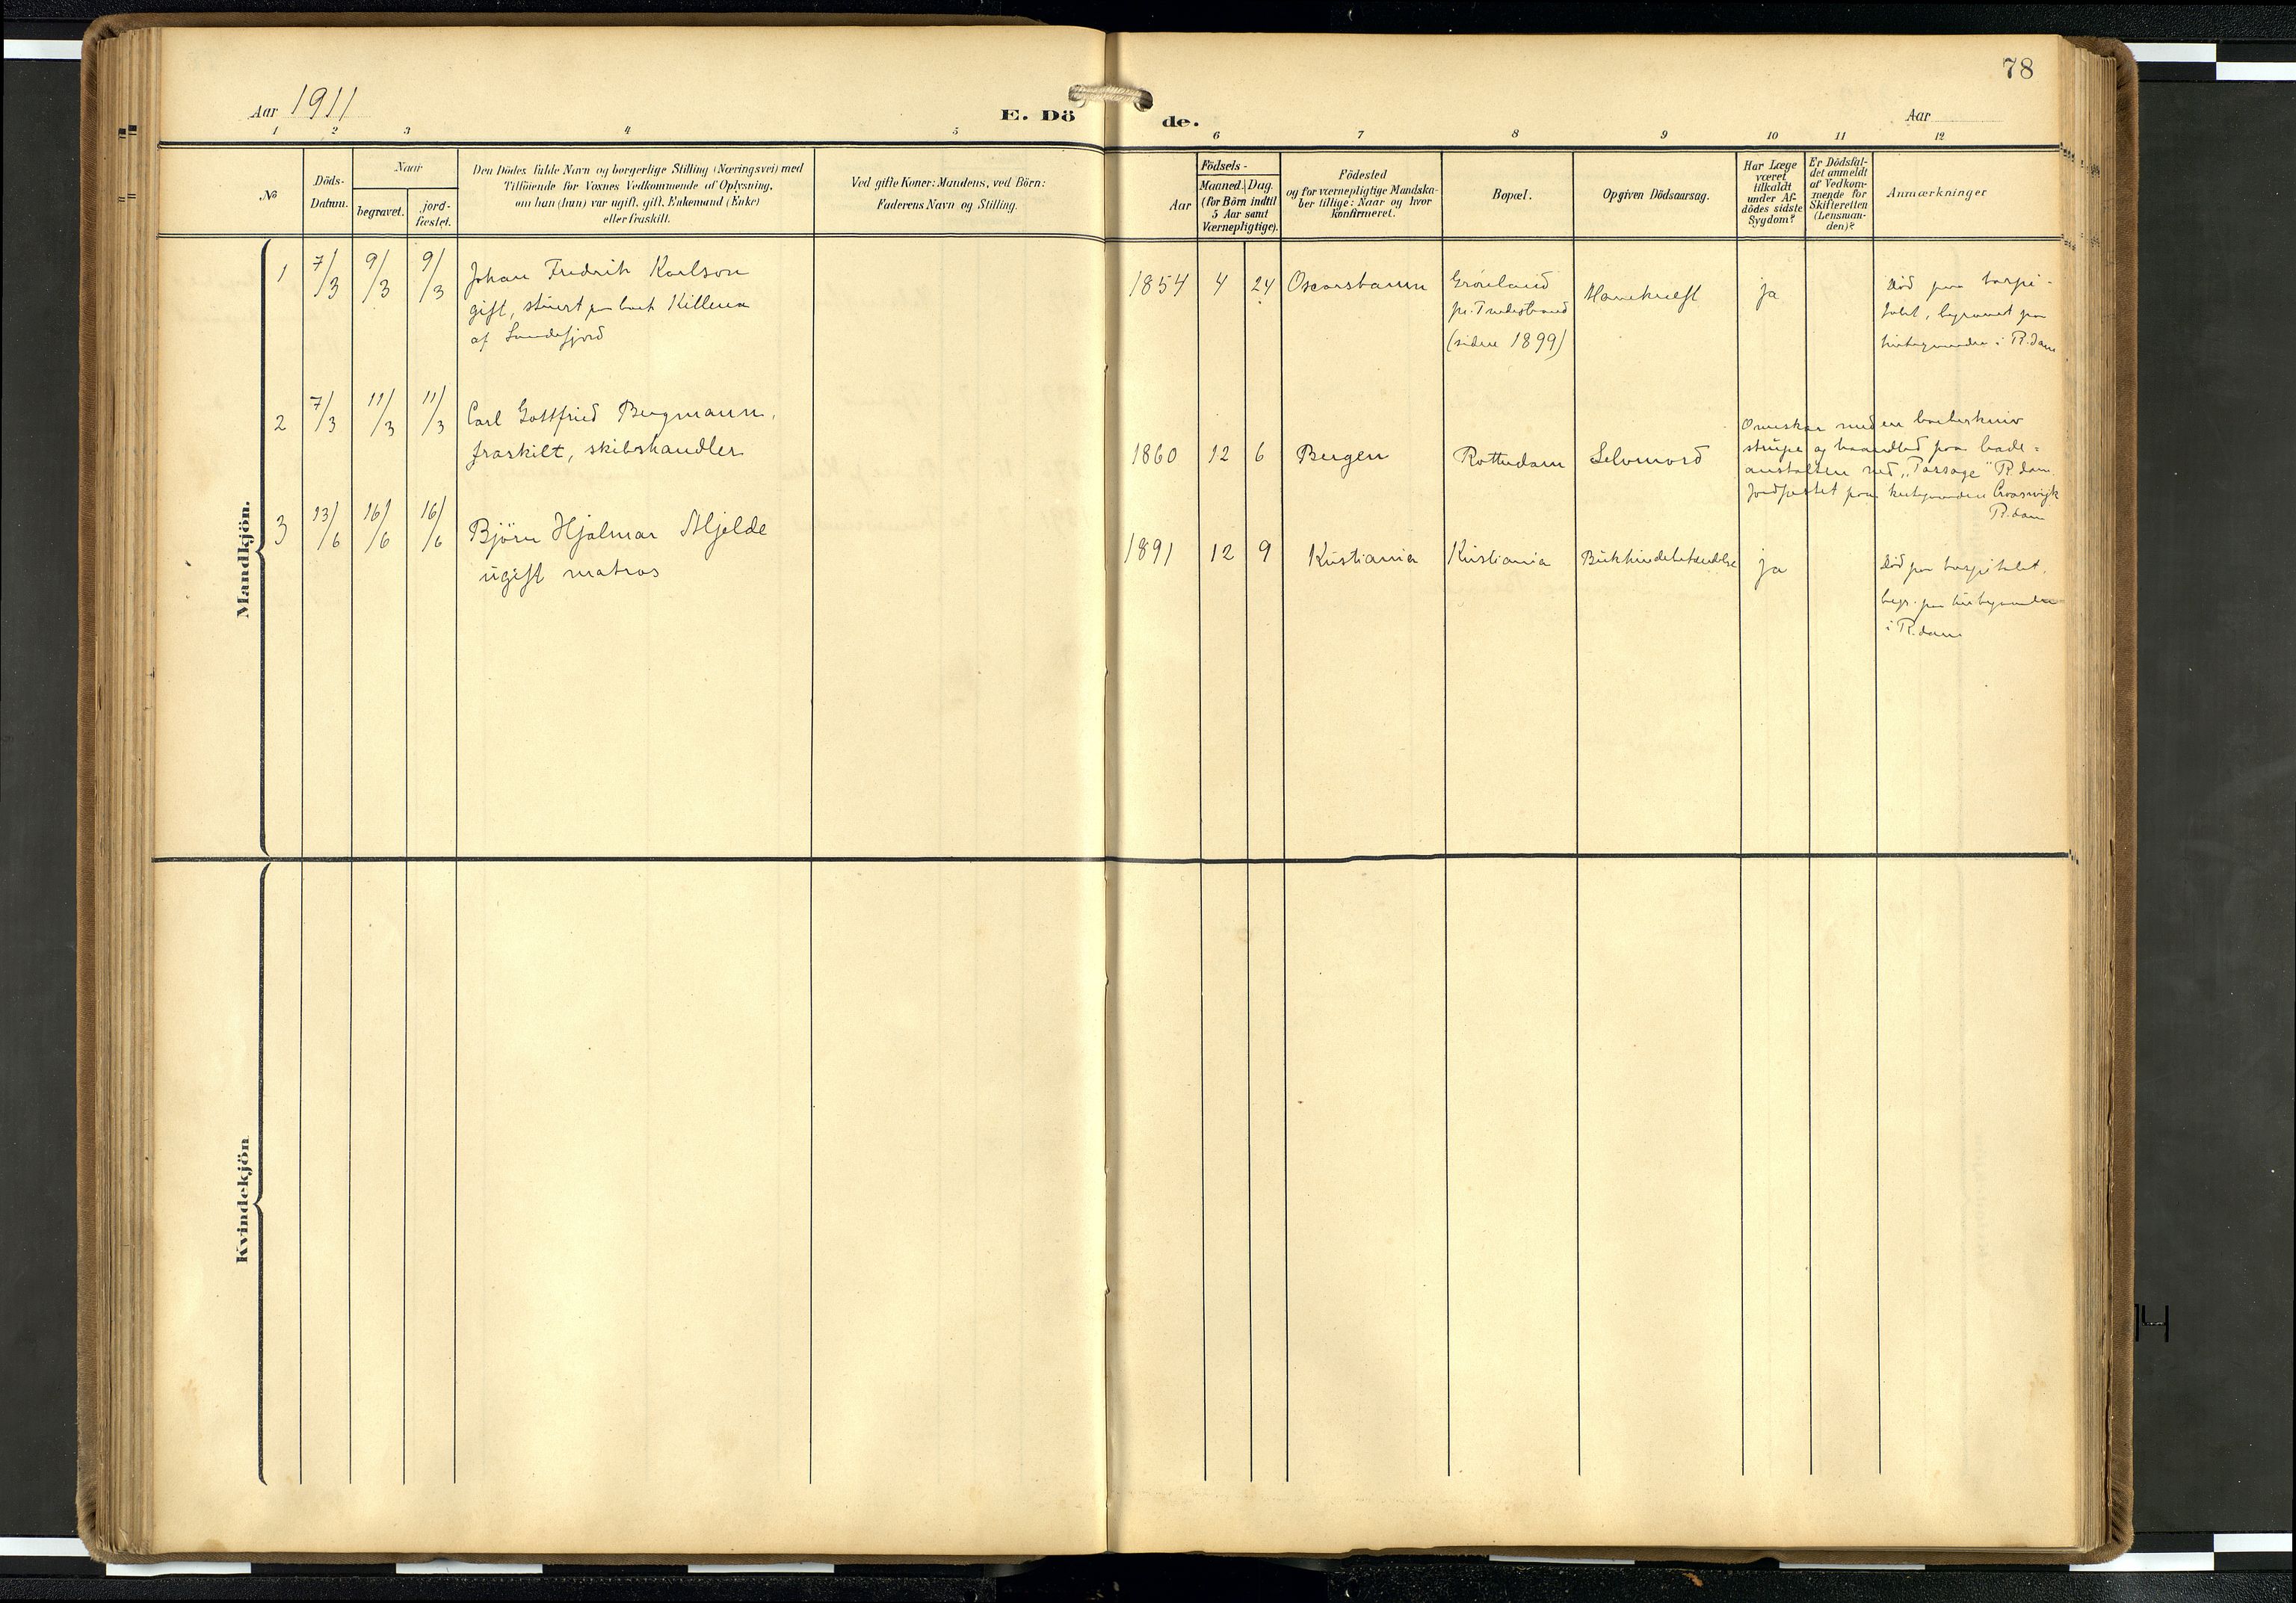 78
Aar 1911
E. Dö de.
Aar
1 2 3 4 5 6 7 8 9 10 11 12
No
Döds-
Datum.
Naar
begravet.
jord-
fæstet.
Den Dödes fulde Navn og borgerlige Stilling (Næringsvei) med
Tilföiende for Voxnes Vedkommende af Oplysning,
om han (hun) var ugift, gift, Enkemand (Enke)
eller fraskilt.
Ved gifte Koner: Mandens, ved Börn:
Faderens Navn og Stilling.
Födsels-
Aar
Maaned. Dag.
(for Börn indtil
5 Aar samt
Værnepligtige).
Födested
og for værnepligtige Mandska-
ber tillige: Naar og hvor
konfirmeret.
Bopæl.
Opgiven Dödsaarsag.
Har Læge
været
tilkaldt
under Af-
dödes sidste
Sygdom?
Er Dödsfal-
det anmeldt
af Vedkom-
mende for
Skifteretten
(Lensman-
den)?
Anmærkninger
Mandkjön.
1 7/3 9/3 9/3
Johan Fredrik Karlson
gift, stuert paa bark Killena
af Sandefjord
1854 4 24 Oscarshamn
Grönland
pr. Tvedestrand
(siden 1899)
ja
Död paa hospi-
talet, begravet paa
kirkegaarden i R.dam
2 7/3 11/3 11/3
Carl Gottfried Bergmann,
fraskilt, skibshandler
1860 12 6 Bergen Rotterdam Selvmord
Overskar med en barberkniv
strupe og haandled paa bade-
anstalten ved "Passage" R.dam.
Jordfæstet paa kirkegaarden Crooswijk
R.dam
3 13/6 16/6 16/6
Björn Hjalmar Mjelde
ugift matros
1891 12 9 Kristiania Kristiania Bukhindebetændelse ja
Död paa hospitalet,
begr. paa kirkegaarden
i R.dam
Kvindekjön